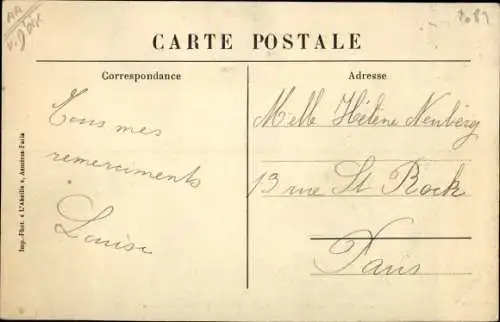 AA
CARTE POSTALE
Correspondance
Adresse
Tous mes
remerciments
Louise
Melle Hélène Nenberg
13 rue St Rock
Paris
Imp.-Phot. « L'Abeille », Asnières-Paris